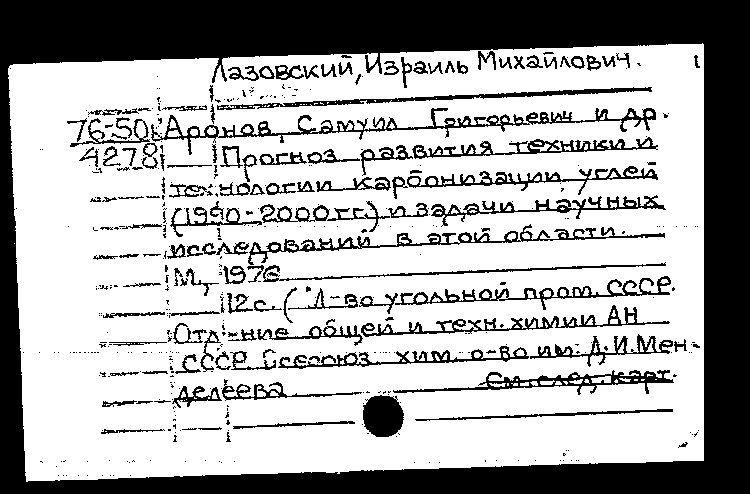 Лазовский, Израиль Михайлович. 1
76-50к Аронов, Самуил Григорьевич и др.
4278 Прогноз развития техники и
технологии карбонизации углей
(1990-2000 гг.) и задачи научных
исследований в этой области.
М., 1976
12 с. (М-во угольной пром. СССР.
Отд-ние общей и техн. химии АН
СССР. Всесоюз. хим. о-во им. Д.И. Мен-
делеева См. след. карт.